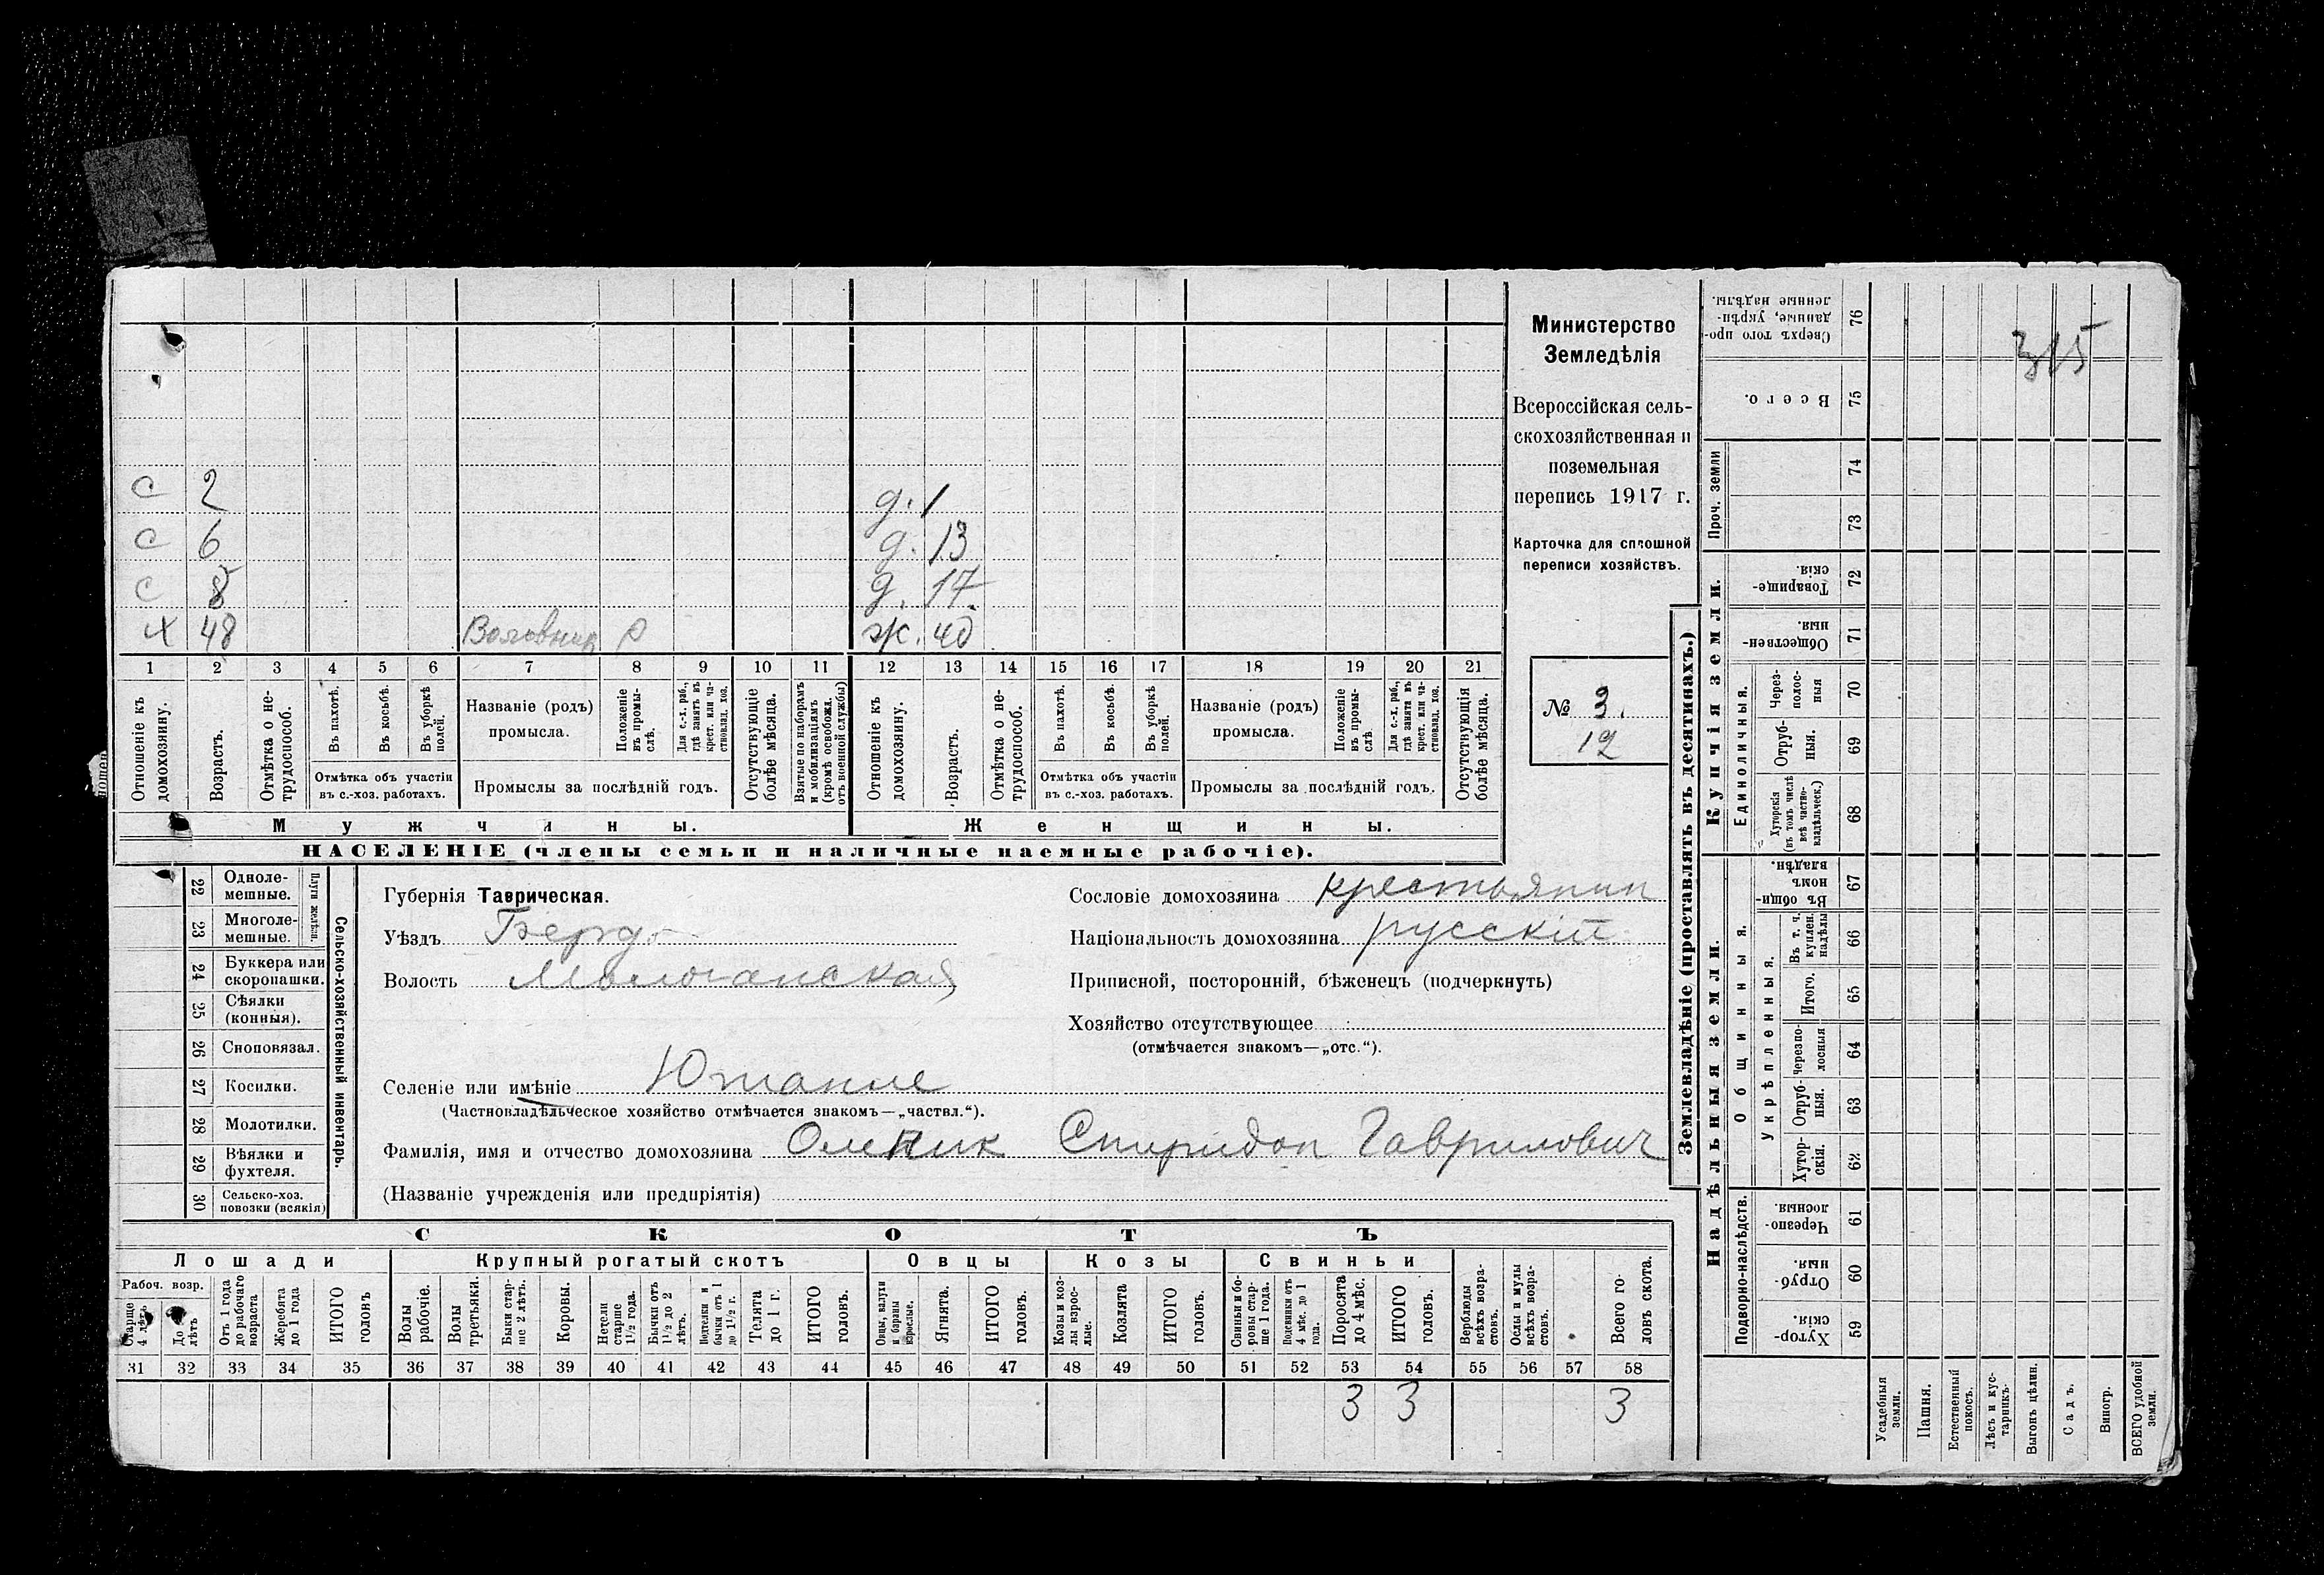 с 2
с 6
с 8
х 48 Воловник р
д. 1
д. 13
д. 17
ж. 40
1 2 3 4 5 6 7 8 9 10 11 12 13 14 15 16 17 18 19 20 21
Отношеніе къ домохозяину.
Возрастъ.
Отмѣтка о не-трудоспособ.
Въ пахотѣ.
Въ косьбѣ.
Въ уборкѣ полей.
Отмѣтка объ участіи
въ с.-хоз. работахъ.
Названіе (родъ)
промысла.
Положеніе въ промы-слѣ.
Для с.-х. раб., гдѣ занятъ въ крест. или ча-стновлад. хоз.
Промыслы за послѣдній годъ.
Отсутствующіе болѣе мѣсяца.
Взятые по наборамъ и мобилизаціямъ (кромѣ освобожд. отъ военной службы)
Отношеніе къ домохозяину.
Возрастъ.
Отмѣтка о не-трудоспособ.
Въ пахотѣ.
Въ косьбѣ.
Въ уборкѣ полей.
Отмѣтка объ участіи
въ с.-хоз. работахъ.
Названіе (родъ)
промысла.
Положеніе въ промы-слѣ
Для с.-х. раб., гдѣ занята въ крест. или ча-стновлад. хоз.
Промыслы за послѣдній годъ.
Отсутствующія болѣе мѣсяца.
Мужчины.
Женщины.
НАСЕЛЕНІЕ (члены семьи и наличные наемные рабочіе).
Министерство
Земледѣлія
Всероссійская сель-
скохозяйственная и
поземельная
перепись 1917 г.
Карточка для сплошной
переписи хозяйствъ.
№ 3.
12
22 Одноле-
мешные.
23 Многоле-
мешные.
Плуги желѣзн.
24 Буккера или
скоропашки.
25 Сѣялки
(конныя).
26 Сноповязал.
27 Косилки.
28 Молотилки.
29 Вѣялки и
фухтеля.
30 Сельско-хоз.
повозки (всякія)
Сельско-хозяйственный инвентарь.
Губернія Таврическая.
Уѣздъ Берд.
Волость Молочанская
Селеніе или имѣніе Юшанле
(Частновладѣльческое хозяйство отмѣчается знакомъ—„частвл.“).
Фамилія, имя и отчество домохозяина Олейник Спиридон Гаврилович
(Названіе учрежденія или предпріятія)
Сословіе домохозяина крестьянин
Національность домохозяина русскій
Приписной, посторонній, бѣженецъ (подчеркнуть)
Хозяйство отсутствующее
(отмѣчается знакомъ—„отс.“).
СКОТЪ
Лошади Крупный рогатый скотъ Овцы Козы Свиньи
Рабоч. возр.
Старше 4 лѣтъ
До лѣтъ
Отъ 1 года до рабочаго возраста
Жеребята до 1 года
ИТОГО головъ
Волы рабочіе.
Волы третьяки.
Быки стар-ше 2 лѣтъ.
Коровы.
Нетели старше 1½ года.
Бычки отъ 1½ до 2 лѣтъ.
Подтелки и бычки отъ 1 до 1½ г.
Телята до 1 г.
ИТОГО головъ.
Овцы, валухи и бараны взрослые.
Ягнята.
ИТОГО головъ.
Козы и коз-лы взрос-лые.
Козлята
ИТОГО головъ.
Свиньи и бо-ровы стар-ше 1 года.
Подсвинки отъ 4 мѣс. до 1 года.
Поросята до 4 мѣс.
ИТОГО головъ.
Верблюды всѣхъ возра-стовъ.
Ослы и мулы всѣхъ возра-стовъ.
Всего го-ловъ скота.
31 32 33 34 35 36 37 38 39 40 41 42 43 44 45 46 47 48 49 50 51 52 53 54 55 56 57 58
3 3 3
Землевладѣніе (проставлять въ десятинахъ.)
Надѣльныя земли.
Купчія земли.
Проч. земли
Подворно-наслѣдств.
Общинныя.
Укрѣпленныя.
Единоличныя.
Сверхъ того про-данные, укрѣп-ленные надѣлы. 76
Всего. 75
74
73
Товарище-скія. 72
Обществен-ныя. 71
Через-полос-ныя 70
Отруб-ныя. 69
Хуторскія (въ томъ числѣ всѣ частно-владѣльческ.) 68
Въ общи-номъ владѣн. 67
Въ т. ч. куплен. надѣлы 66
Итого. 65
Черезпо-лосныя 64
Отруб-ныя. 63
Хутор-скія. 62
Черезпо-лосныя. 61
Отруб-ныя. 60
Хутор-скія. 59
Усадебныя земли.
Пашня.
Естественный покосъ.
Лѣсъ и кус-тарникъ.
Выгонъ цѣлин.
Садъ.
Виногр.
ВСЕГО удобной земли.
315